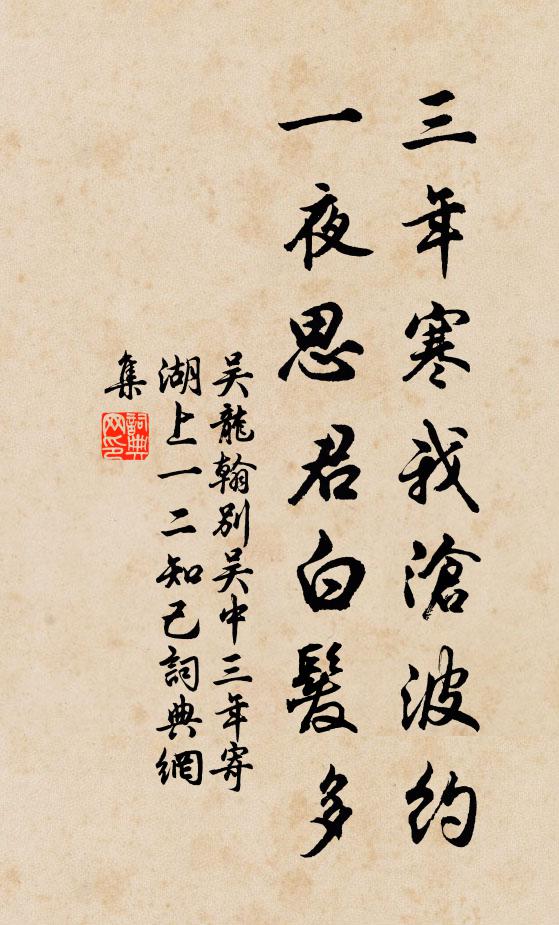 三年寒我滄波約
一夜思君白髮多
吳龍翰別吳中三年寄
湖上一二知己詞典網
集
詞典網印